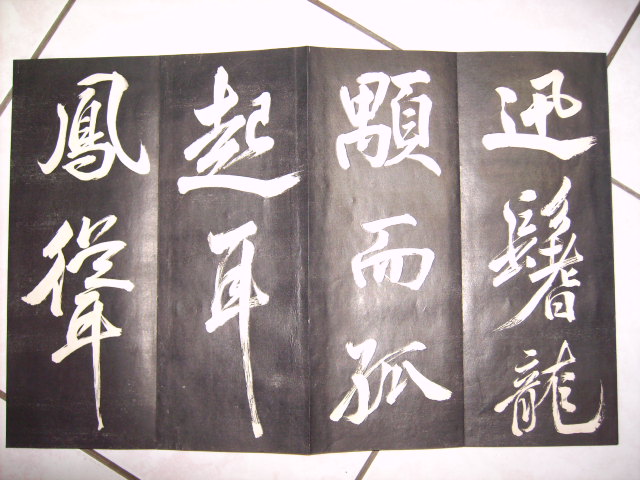 迅鬐龍
顒而孤
起耳
鳳聳